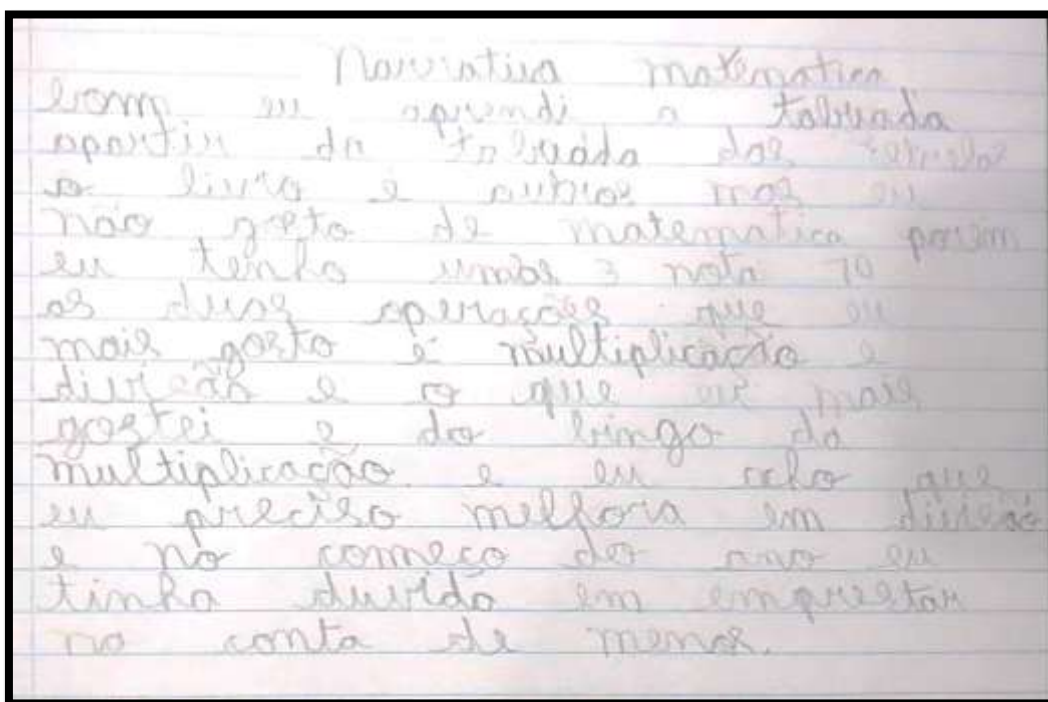 Narrativa matematica
bom eu aprendi a tabuada
apartir da tabuada das
o livro e outros mas eu
não gosto de matematica porém
eu tenho umas 3 nota 10
as duas operações que eu
mais gosto é multiplicação e
divisão e o que eu mais
gostei e do bingo da
multiplicação. e eu acho que
eu preciso melhora em divisão
e no começo do ano eu
tinha duvida em emprestar
na conta de menos.